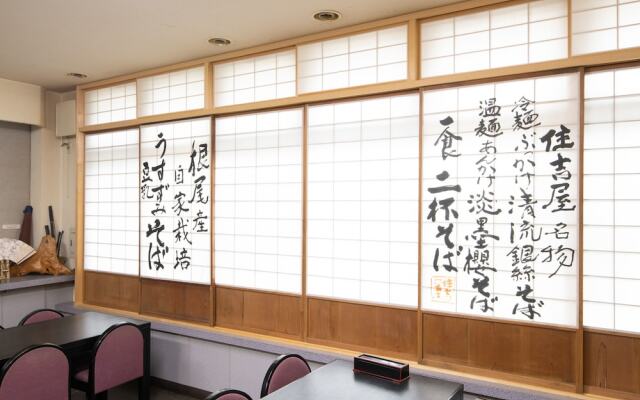 住吉屋名物
冷麺ぶっかけ清流銀絲そば
温麺あんかけ淡墨櫻そば
一食二杯そば
根尾産
自家栽培
うすずみそば
豆乳